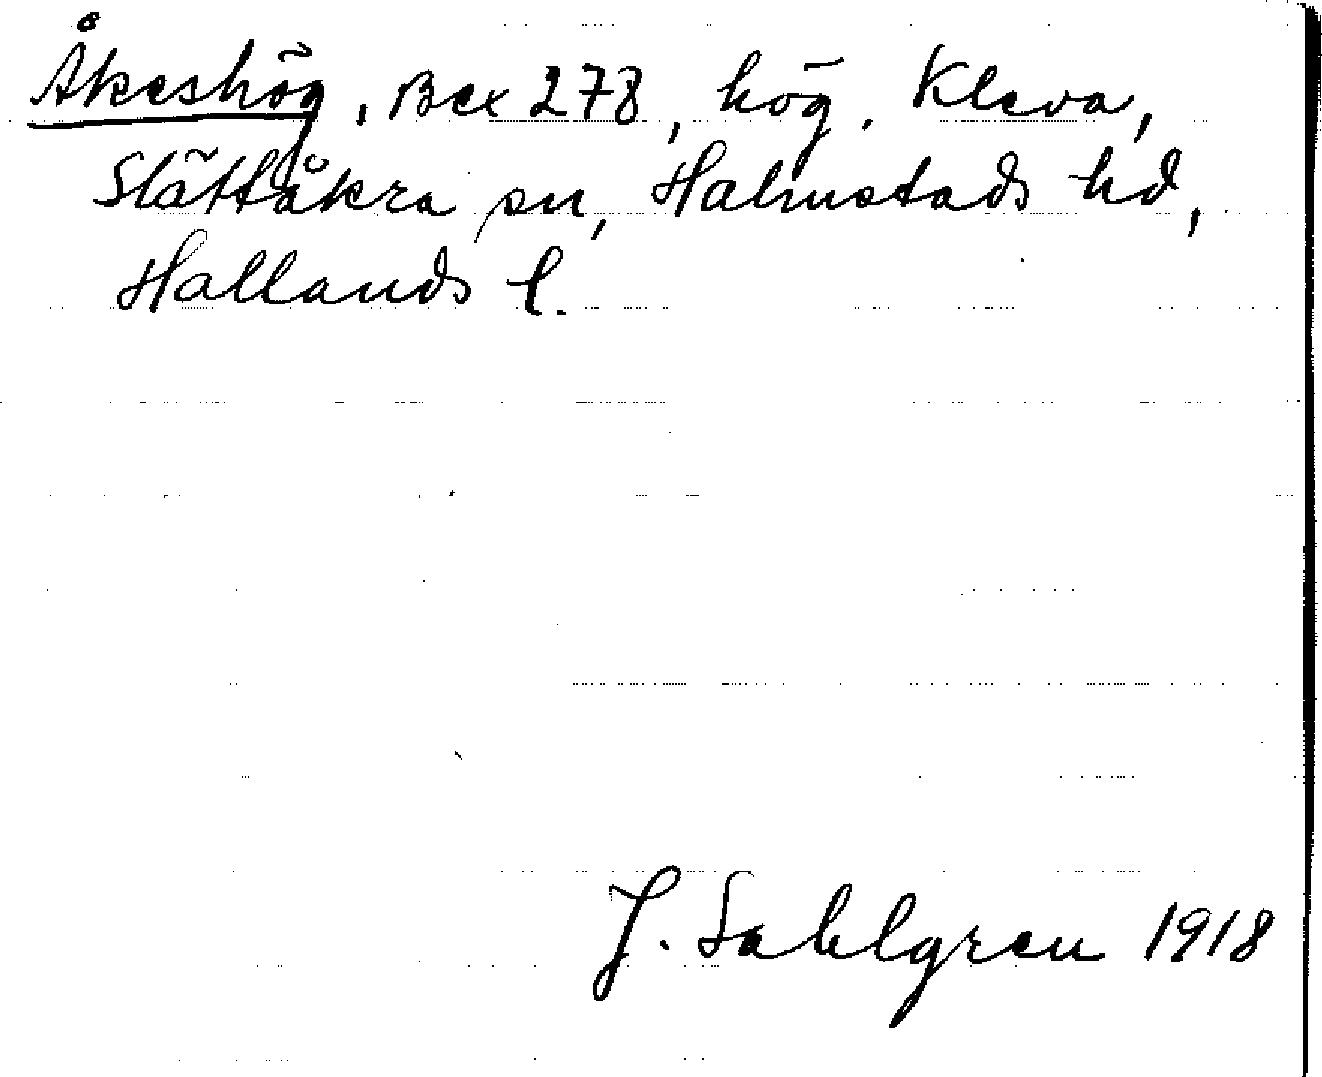 Åkeshög, Bex 278, hög. Kleva,
Slättåkra sn, Halmstads hd,
Hallands l.
J. Sahlgren 1918